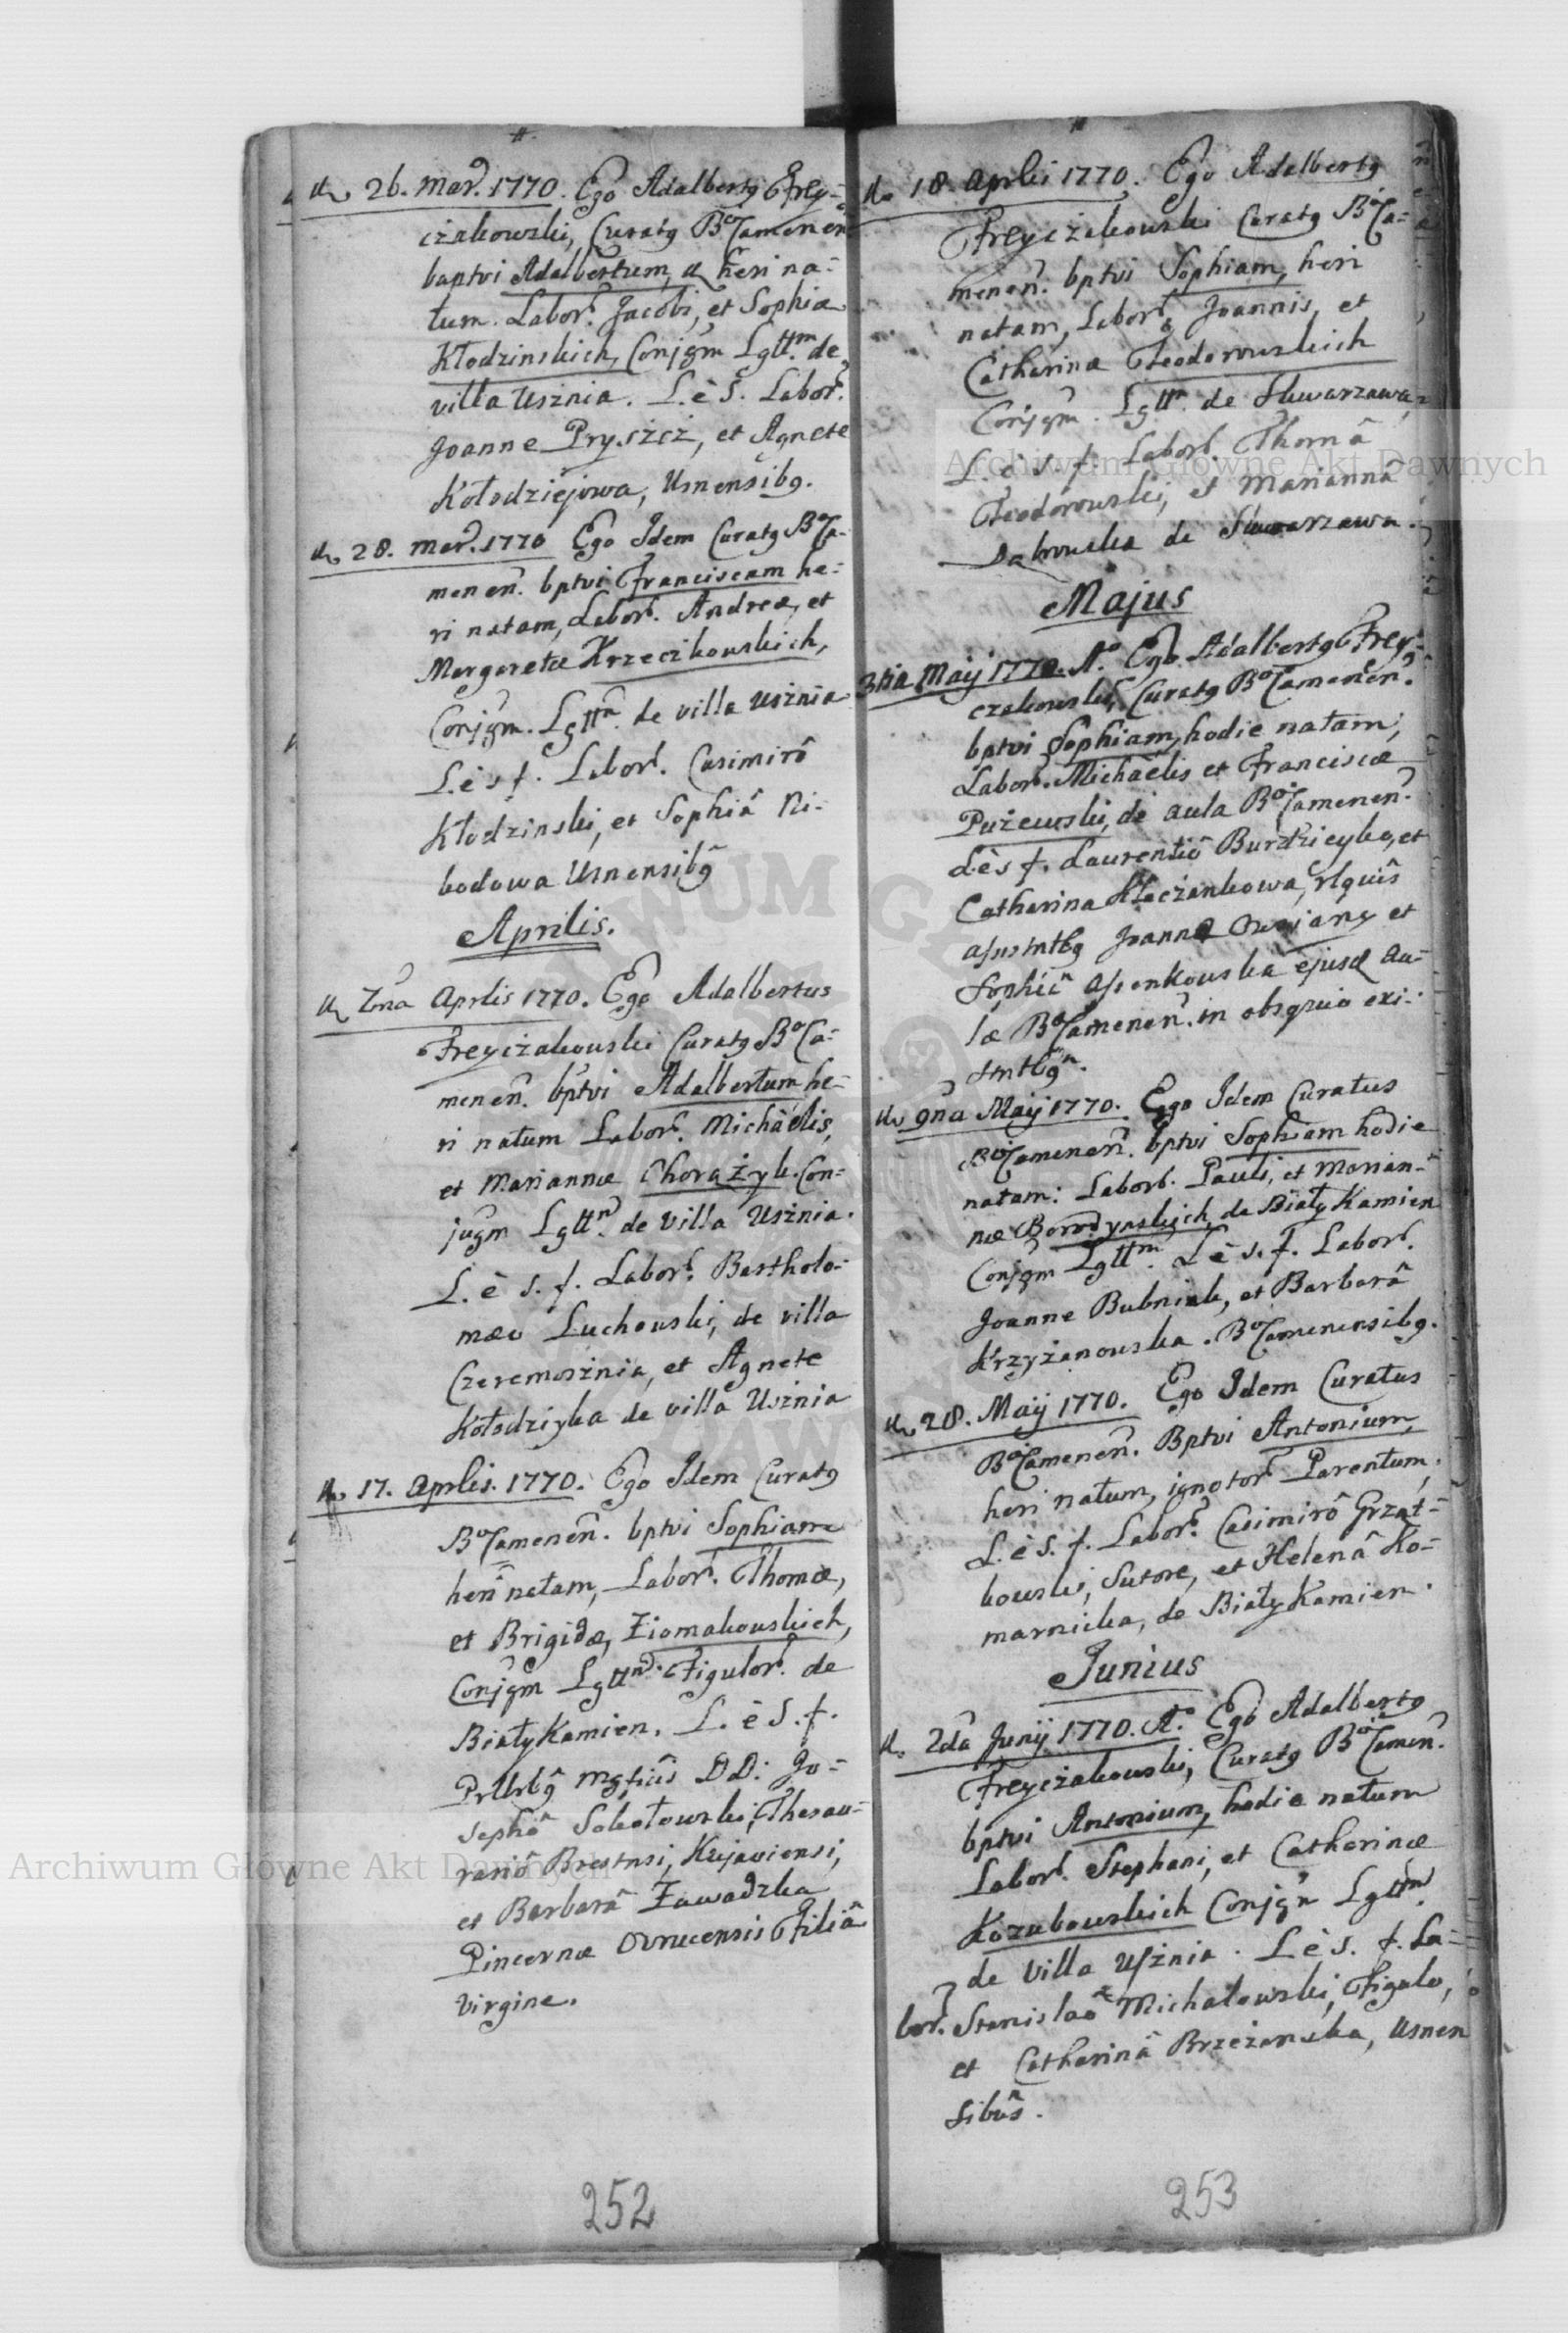 26. Mar. 1770. Ego Adalbertg Frey-
czakowski, Curatg BoCamenen
baptvi Adalbertum, heri na-
tum. Labor. Jacobi, et Sophiæ
Kłodzinskich, Conjgm Lgttm. de
villa Usznia. L. è S. Labor.
Joanne Pryszcz, et Agnete
Kołodziejowa, Usnensibg.
28. Mar. 1770 Ego Idem Curatg BoCa-
menen. bptvi Franciscam he-
ri natam, Labor. Andreæ, et
Margaretæ Krzeczkowskich,
Conjgm. Lgttm. de villa Usznia
L. è s f. Labor. Casimirô
Kłodzinski, et Sophiâ Ri-
bodowa Usnensibg
Aprilis.
2na Aprlis 1770. Ego Adalbertus
Freyczakowski Curatg BoCa-
menen. bptvi Adalbertum he-
ri natum Labor. Michaëlis,
et Mariannæ Chorążyk. Con-
jugm Lgttm. de villa Usznia.
L. è s. f. Labor. Bartholo-
mæo Luchowski, de villa
Czeremosznia, et Agnete
Kołodziyka de villa Usznia
17. Aprlis. 1770. Ego Idem Curatg
BoCamenen. bptvi Sophiam
heri natam, Labor. Thomæ,
et Brigidæ, Ziomakowskich,
Conjgm Lgttm. Figulor. de
Biały Kamien. L. è S. f.
mgficis DD: Jo-
sephô Sokołowski, Thesau-
rariô Brestnsi, Kujaviensi,
et Barbarâ Zawadzka
Pincernæ Ovrucensis Filiâ
Virgine.
252
18. Aprlis 1770. Ego Adalbertg
Freyczakowski Curatg BoCa-
menen. bptvi Sophiam, heri
natam, Labor. Joannis, et
Catharinæ Teodorowskich
Conjgm. Lgttm. de Skwarzawa,
L. è s. f. Labor. Thomâ
Teodorowski, et Mariannâ
Dąbrowska de Skwarzawa.
Majus
3tia Maij 1770. Aº. Ego Adalbertg Frey-
czakowski, Curatg BoCamenen.
bptvi Sophiam, hodie natam,
Labor. Michaëlis et Franciscæ
Puzewski, de aula BoCamenen.
L è s f. Laurentiô et
Catharina
Joanne et
Sophiâ ejusd au-
læ BoCamenen. in obsquio exi-
stntbg.
9na Maij 1770. Ego Idem Curatus
BoCamenen. bptvi Sophiam hodie
natam: Labor. Pauli, et Marian-
næ Borodynskich de Biały Kamien
Conjgm Lgttm. L è s. f. Labor.
Joanne Bubniak, et Barbarâ
Krzyżanowska. BoCamenensibg.
28. Maij 1770. Ego Idem Curatus
BoCamenen. Bptvi Antonium,
heri natum, ignotor Parentum,
L. è S. f. Labor. Casimirô Grząt-
kowski, Sutore, et Helenâ Ko-
marnicka, de Biały Kamien.
Junius
2da Junij 1770. Aº. Ego Adalbertg
Freyczakowski, Curatg BoCamen.
bptvi Antonium, hodie natum
Labor. Stephani, et Catharinæ
Kozubowskich Conjgm Lgttm.
de Villa Usznia. L è s. f. La-
bor. Stanislaô Michałowski, Figulo,
et Catharinâ Brzezanska, Usnen
sibus.
253
Archiwum Główne Akt Dawnych
Archiwum Główne Akt Dawnych